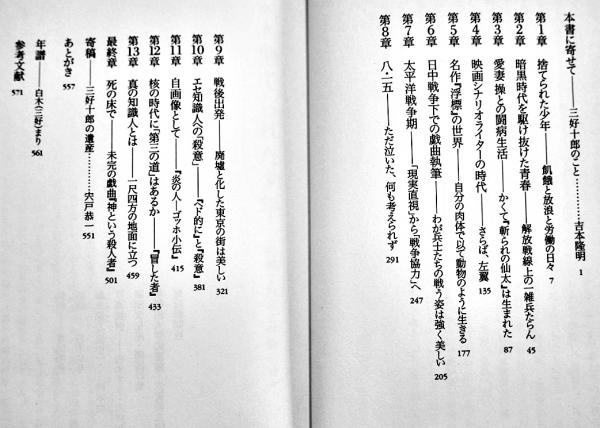 本書に寄せて――三好十郎のこと…………吉本隆明 1
第1章 捨てられた少年――飢餓と放浪と労働の日々 7
第2章 暗黒時代を駆け抜けた青春――解放戦線上の一雑兵たらん 45
第3章 愛妻 操との闘病生活――かくて『斬られの仙太』は生まれた 87
第4章 映画シナリオライターの時代――さらば、左翼 135
第5章 名作『浮標』の世界――自分の肉体で以て動物のように生きる 177
第6章 日中戦争下での戯曲執筆――わが兵士たちの戦う姿は強く美しい 205
第7章 太平洋戦争期――「現実直視」から「戦争協力」へ 247
第8章 八・一五――ただ泣いた、何も考えられず 291
第9章 戦後出発――廃墟と化した東京の街は美しい 321
第10章 エセ知識人への「殺意」――『ヘド的に』と『殺意』 381
第11章 自画像として――『炎の人―ゴッホ小伝』 415
第12章 核の時代に「第三の道」はあるか――『冒した者』 433
第13章 真の知識人とは――一尺四方の地面に立つ 459
最終章 死の床で――未完の戯曲『神という殺人者』 501
寄稿――三好十郎の遺産…………宍戸恭一 551
あとがき 557
年譜――白木(三好)まり 561
参考文献 571